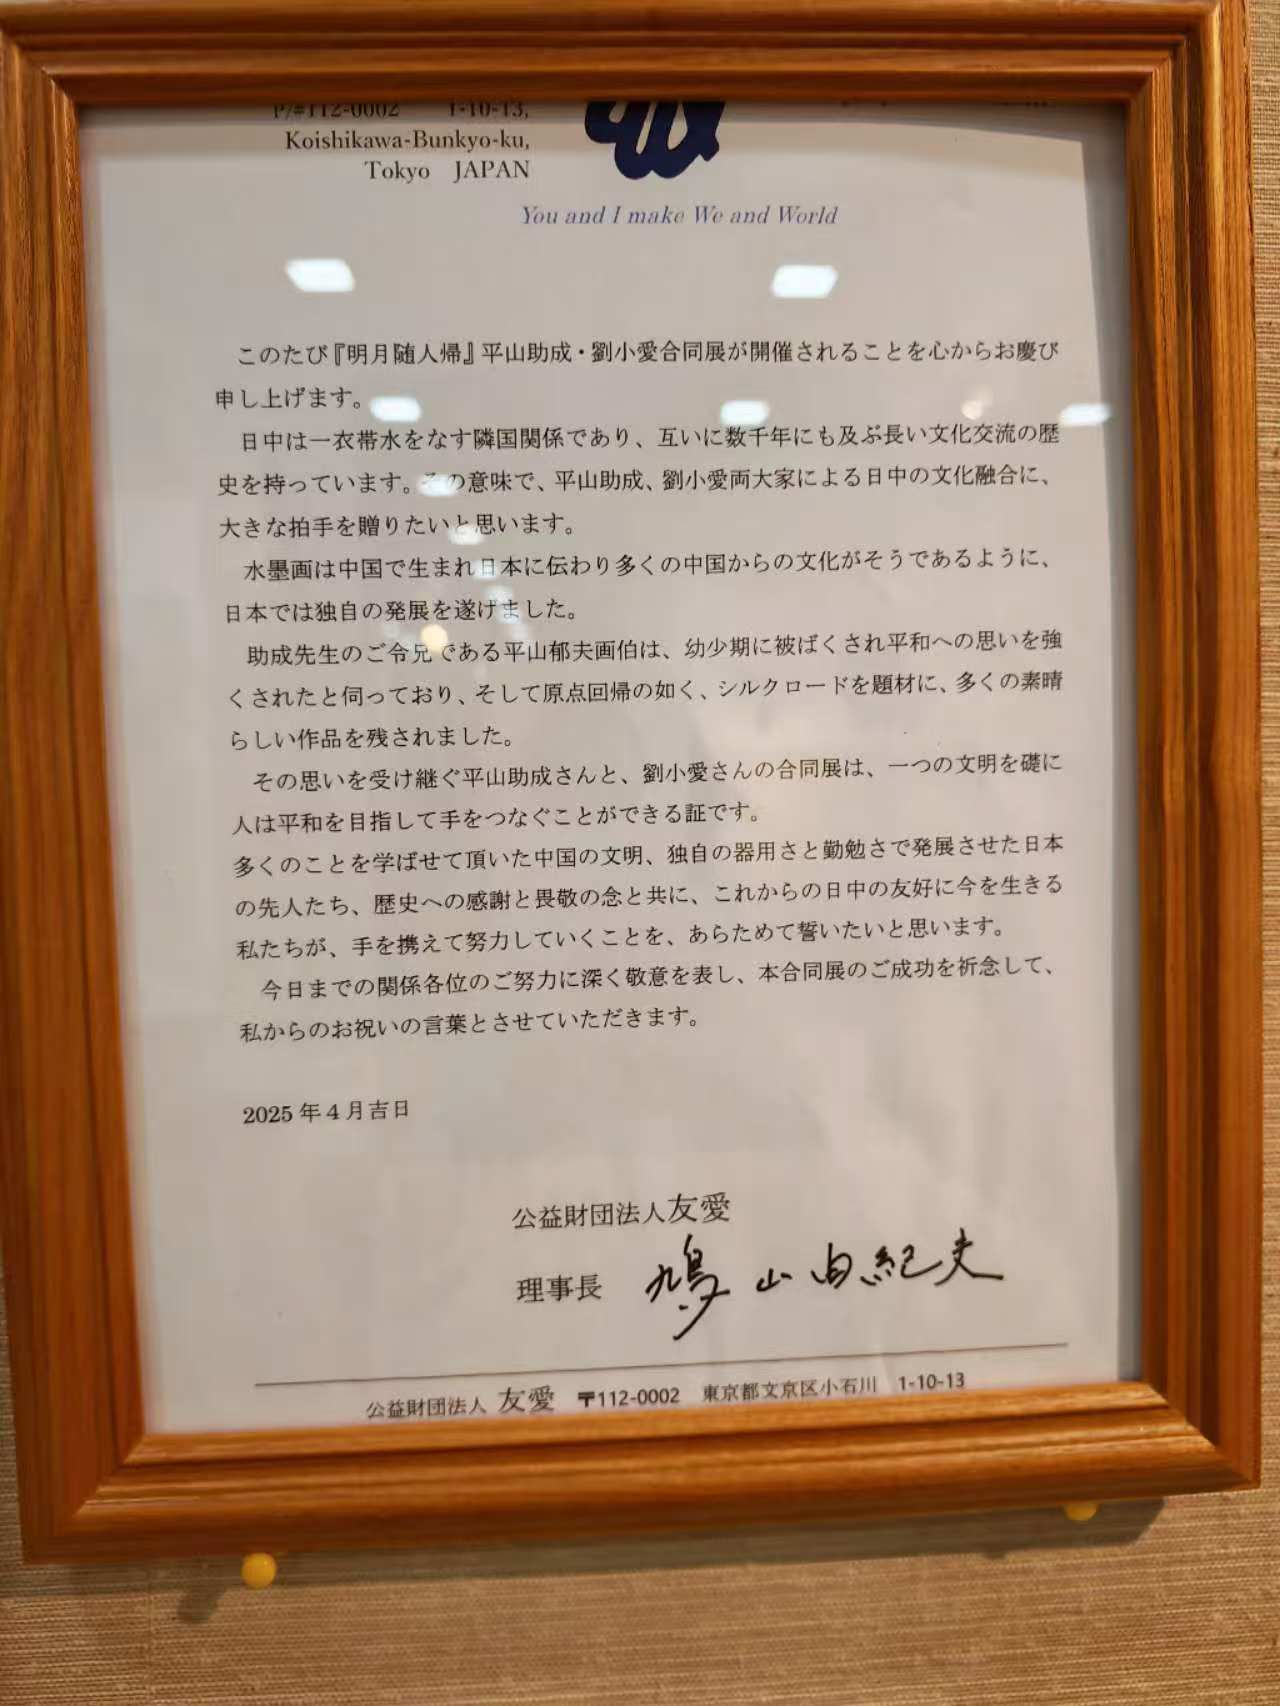 P/#112-0002 1-10-13,
Koishikawa-Bunkyo-ku,
Tokyo JAPAN
You and I make We and World
このたび『明月随人帰』平山助成・劉小愛合同展が開催されることを心からお慶び
申し上げます。
日中は一衣帯水をなす隣国関係であり、互いに数千年にも及ぶ長い文化交流の歴
史を持っています。その意味で、平山助成、劉小愛両大家による日中の文化融合に、
大きな拍手を贈りたいと思います。
水墨画は中国で生まれ日本に伝わり多くの中国からの文化がそうであるように、
日本では独自の発展を遂げました。
助成先生のご令兄である平山郁夫画伯は、幼少期に被ばくされ平和への思いを強
くされたと伺っており、そして原点回帰の如く、シルクロードを題材に、多くの素晴
らしい作品を残されました。
その思いを受け継ぐ平山助成さんと、劉小愛さんの合同展は、一つの文明を礎に
人は平和を目指して手をつなぐことができる証です。
多くのことを学ばせて頂いた中国の文明、独自の器用さと勤勉さで発展させた日本
の先人たち、歴史への感謝と畏敬の念と共に、これからの日中の友好に今を生きる
私たちが、手を携えて努力していくことを、あらためて誓いたいと思います。
今日までの関係各位のご努力に深く敬意を表し、本合同展のご成功を祈念して、
私からのお祝いの言葉とさせていただきます。
2025年4月吉日
公益財団法人友愛
理事長 鳩山由紀夫
公益財団法人 友愛 〒112-0002 東京都文京区小石川 1-10-13